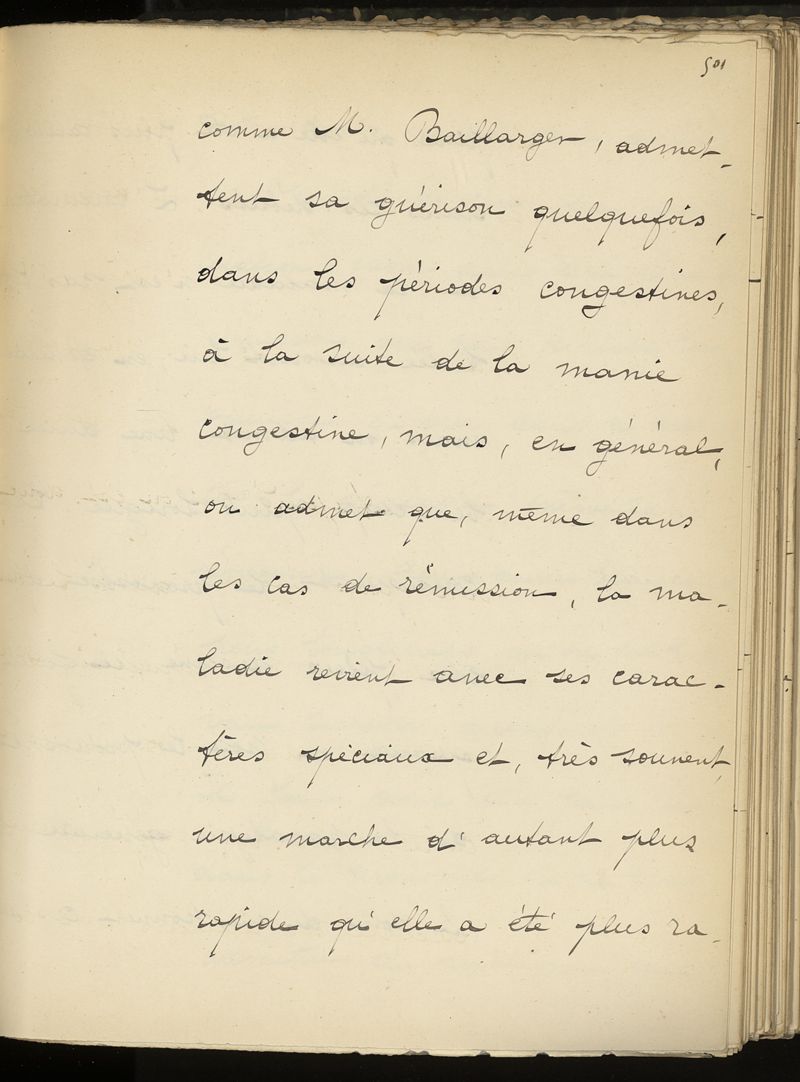 501
comme M. Baillarger, admet-
tent sa guérison quelquefois,
dans les périodes congestives,
à la suite de la manie
congestive, mais, en général,
on admet que, même dans
les cas de rémission, la ma-
ladie revient avec ses carac-
tères spéciaux et, très souvent,
une marche d'autant plus
rapide qu'elle a été plus ra-